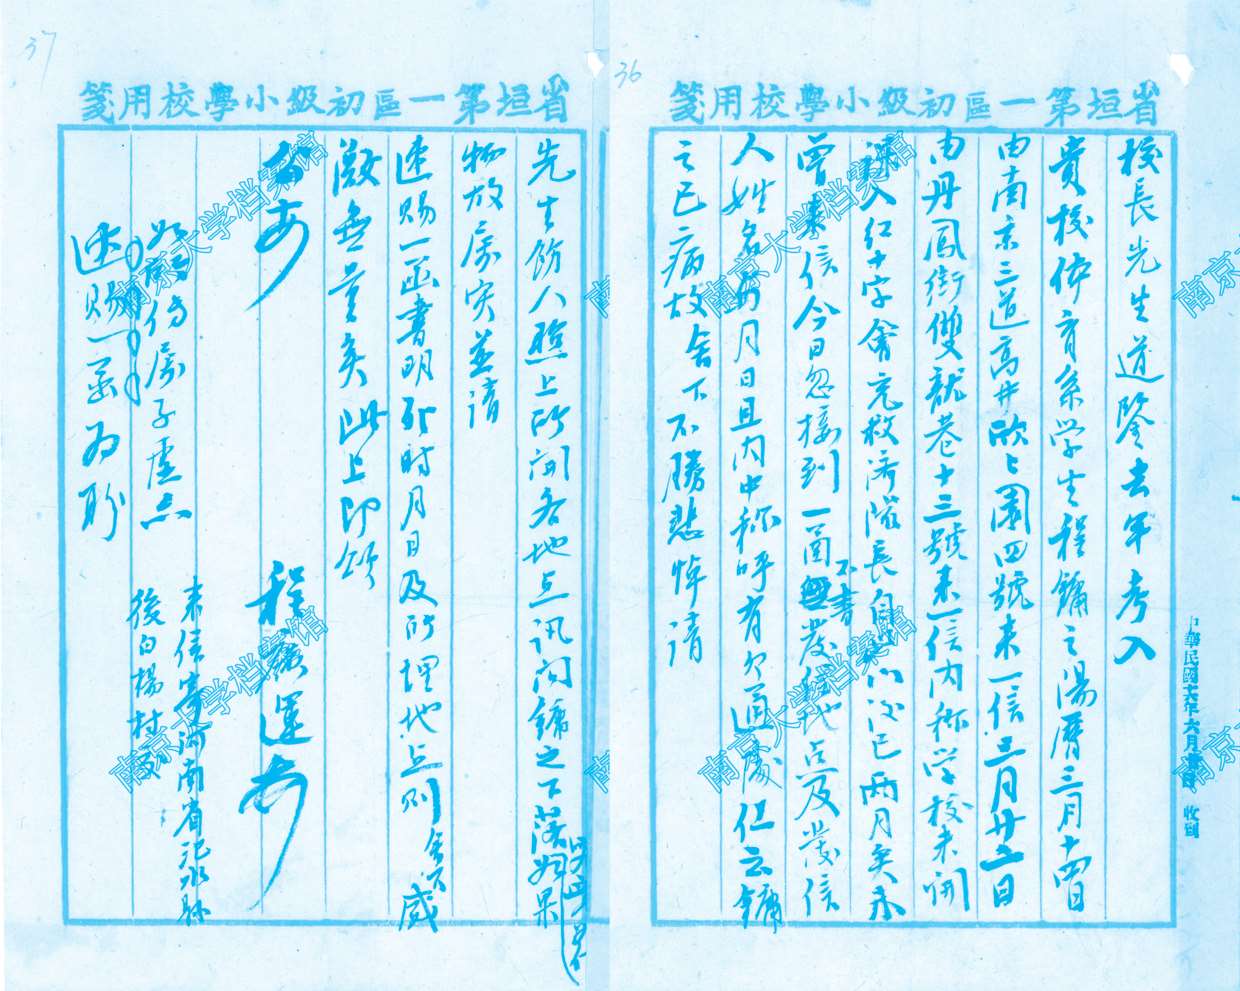 36
省垣第一區初級小學校用箋
校長先生道鑒去年考入
貴校体育系学生程鏞之湯曆三月十四日
由南京三道高井 園四號来一信三月廿二日
由丹鳳街雙龍巷十三號来一信内称学校未開
課入紅十字會充救济隊長自 以後已两月矣未
曾来信今日忽接到一函不書發信地点及發信
人姓名与月日且内中称呼有欠通處但云鏞
之已病故舍下不勝悲悼請
中華民國十六年六月 日收到
37
省垣第一區初級小學校用箋
先生飭人照上所開各地点訊问鏞之下落如果
物故属实並請
速赐一函書明死時月日及所埋地点则舍下感
激無量矣此上即頌
台安
程 運
如 係属子虚亦
速赐一函为盼
来信寄河南省汜水縣
後白楊村
南京大学档案馆